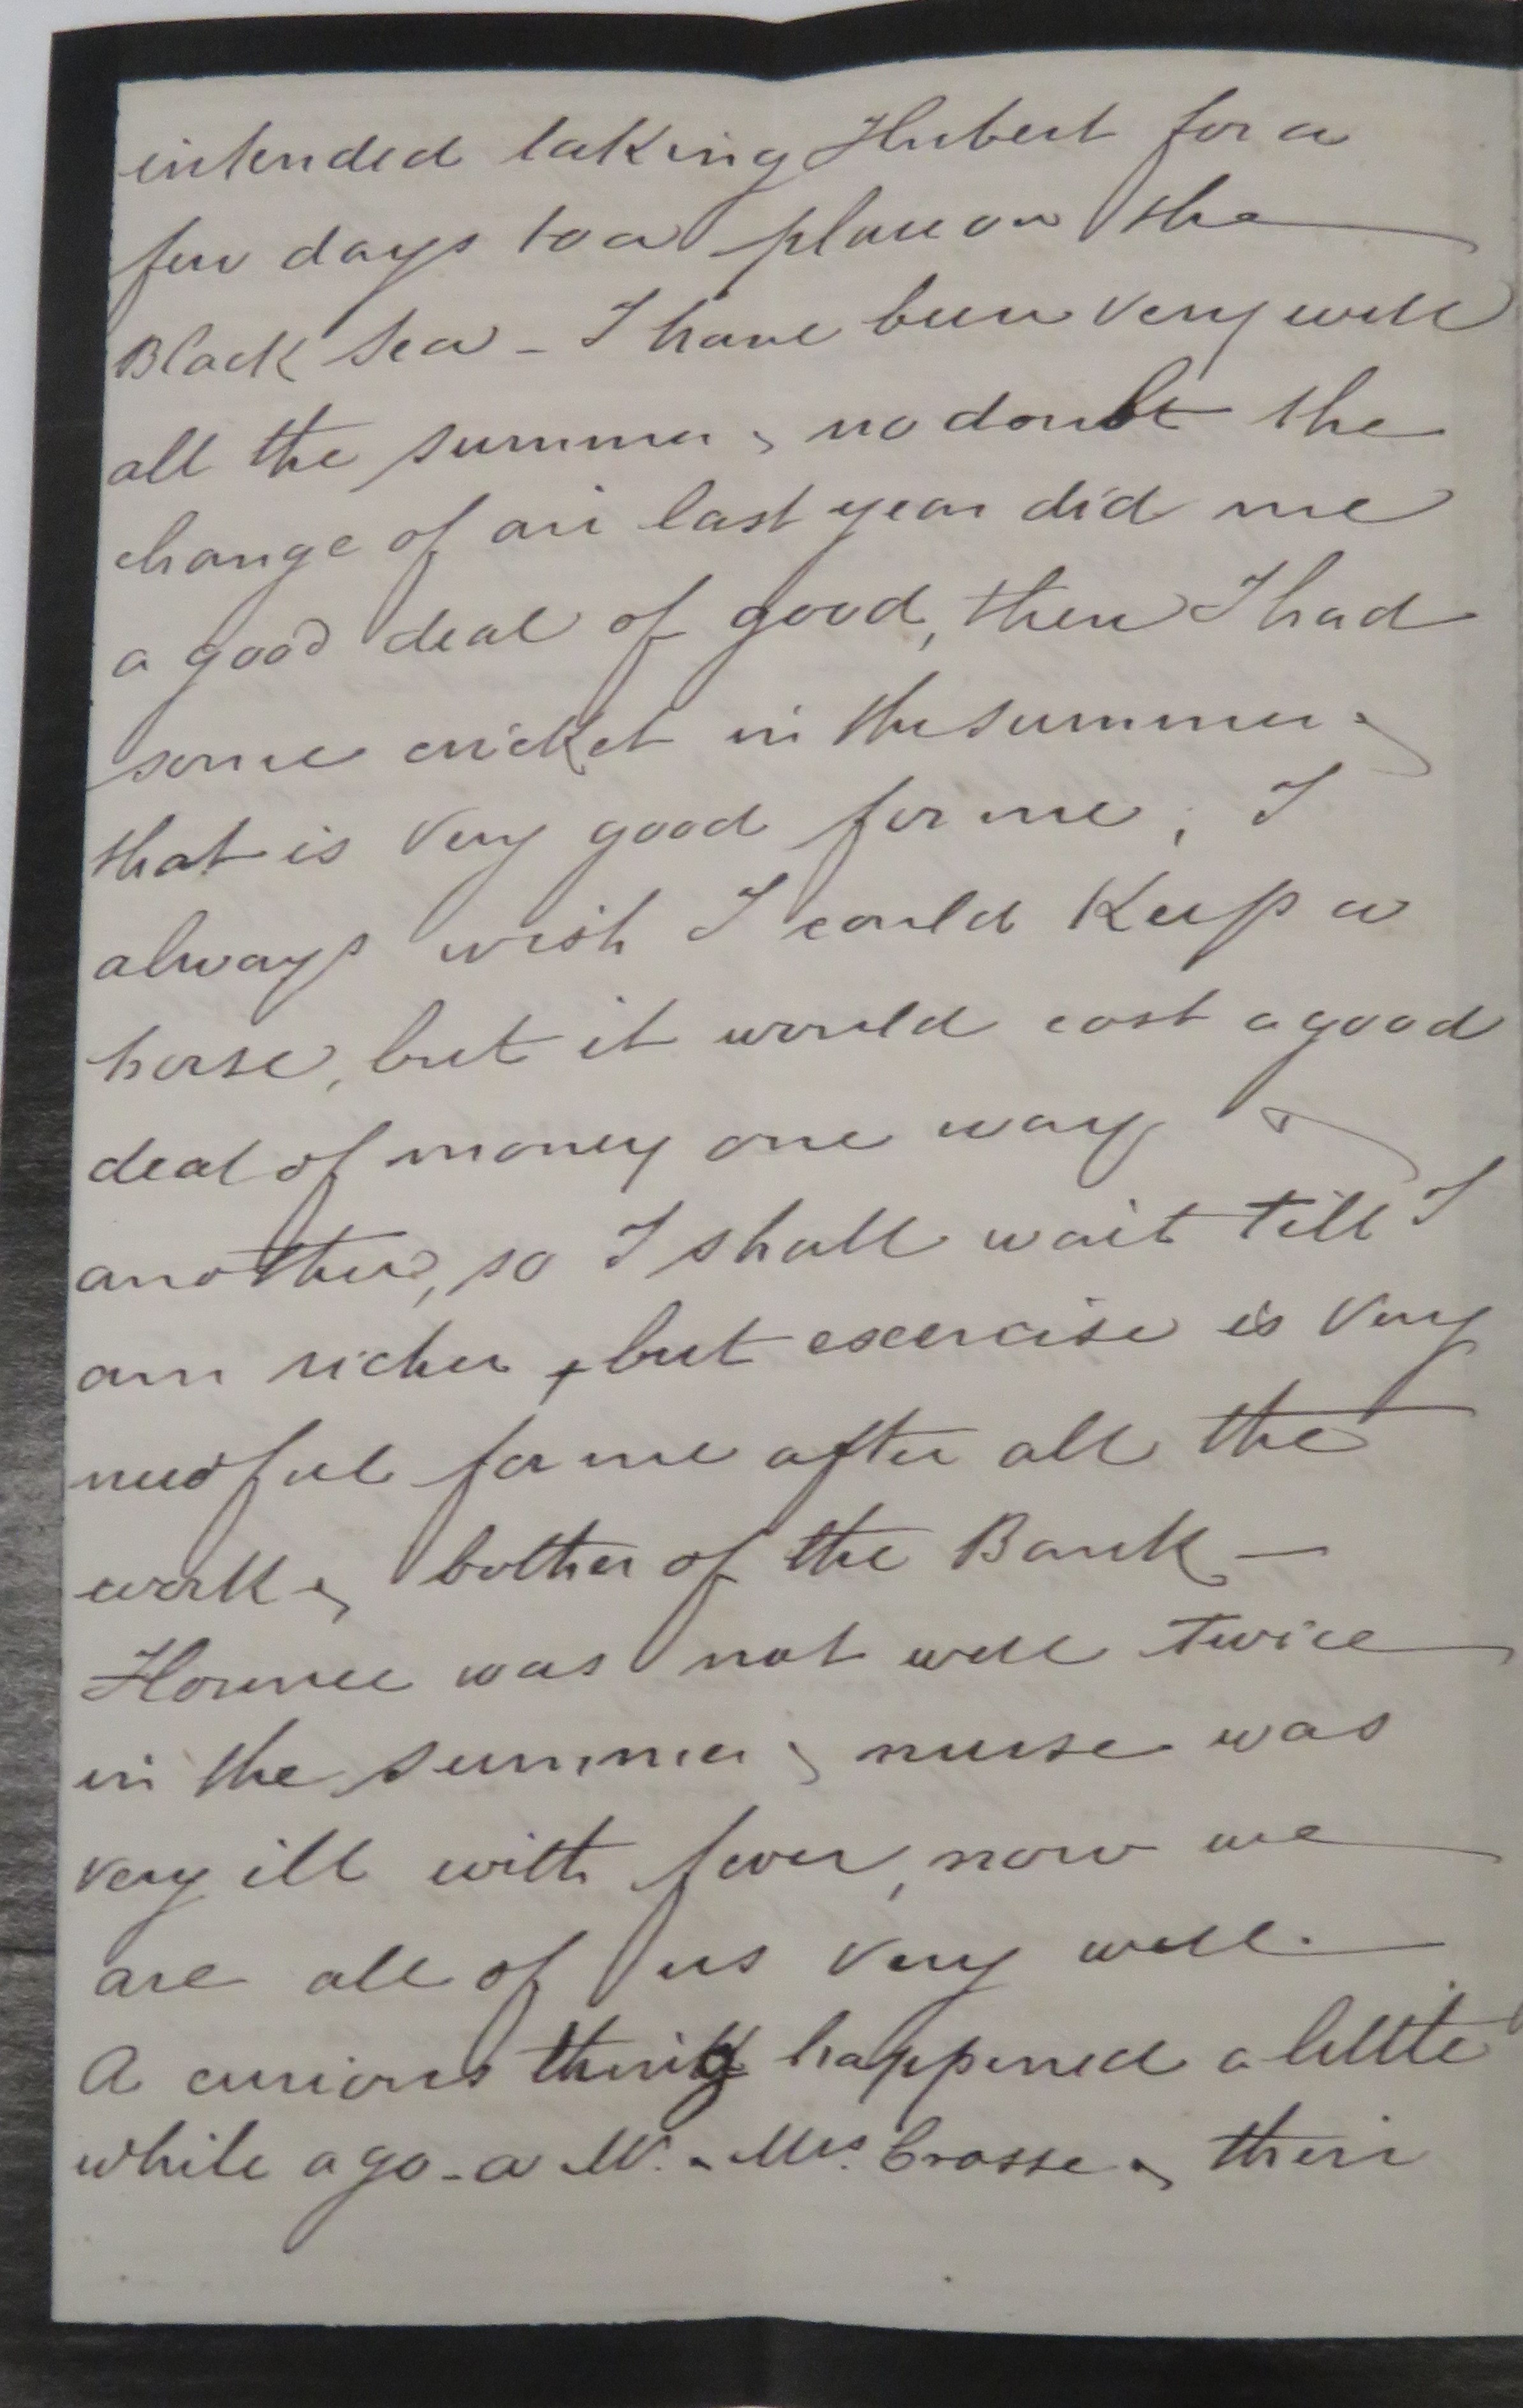 intended taking Hubert for a
few days to a place on the
Black Sea - I have been very well
all the summer & no doubt the
change of air last year did me
a good deal of good, then I had
some cricket in the summer &
that is very good for me; I
always wish I could keep a
horse, but it would cost a good
deal of money one way &
another, so I shall wait till I
am richer, but exercise is very
needful for me after all the
work & bother of the Bank —
Florence was not well twice
in the summer & nurse was
very ill with fever, now we
are all of us very well.
A curious thing happened a little
while ago - a Mr. & Mrs. Crosse & their